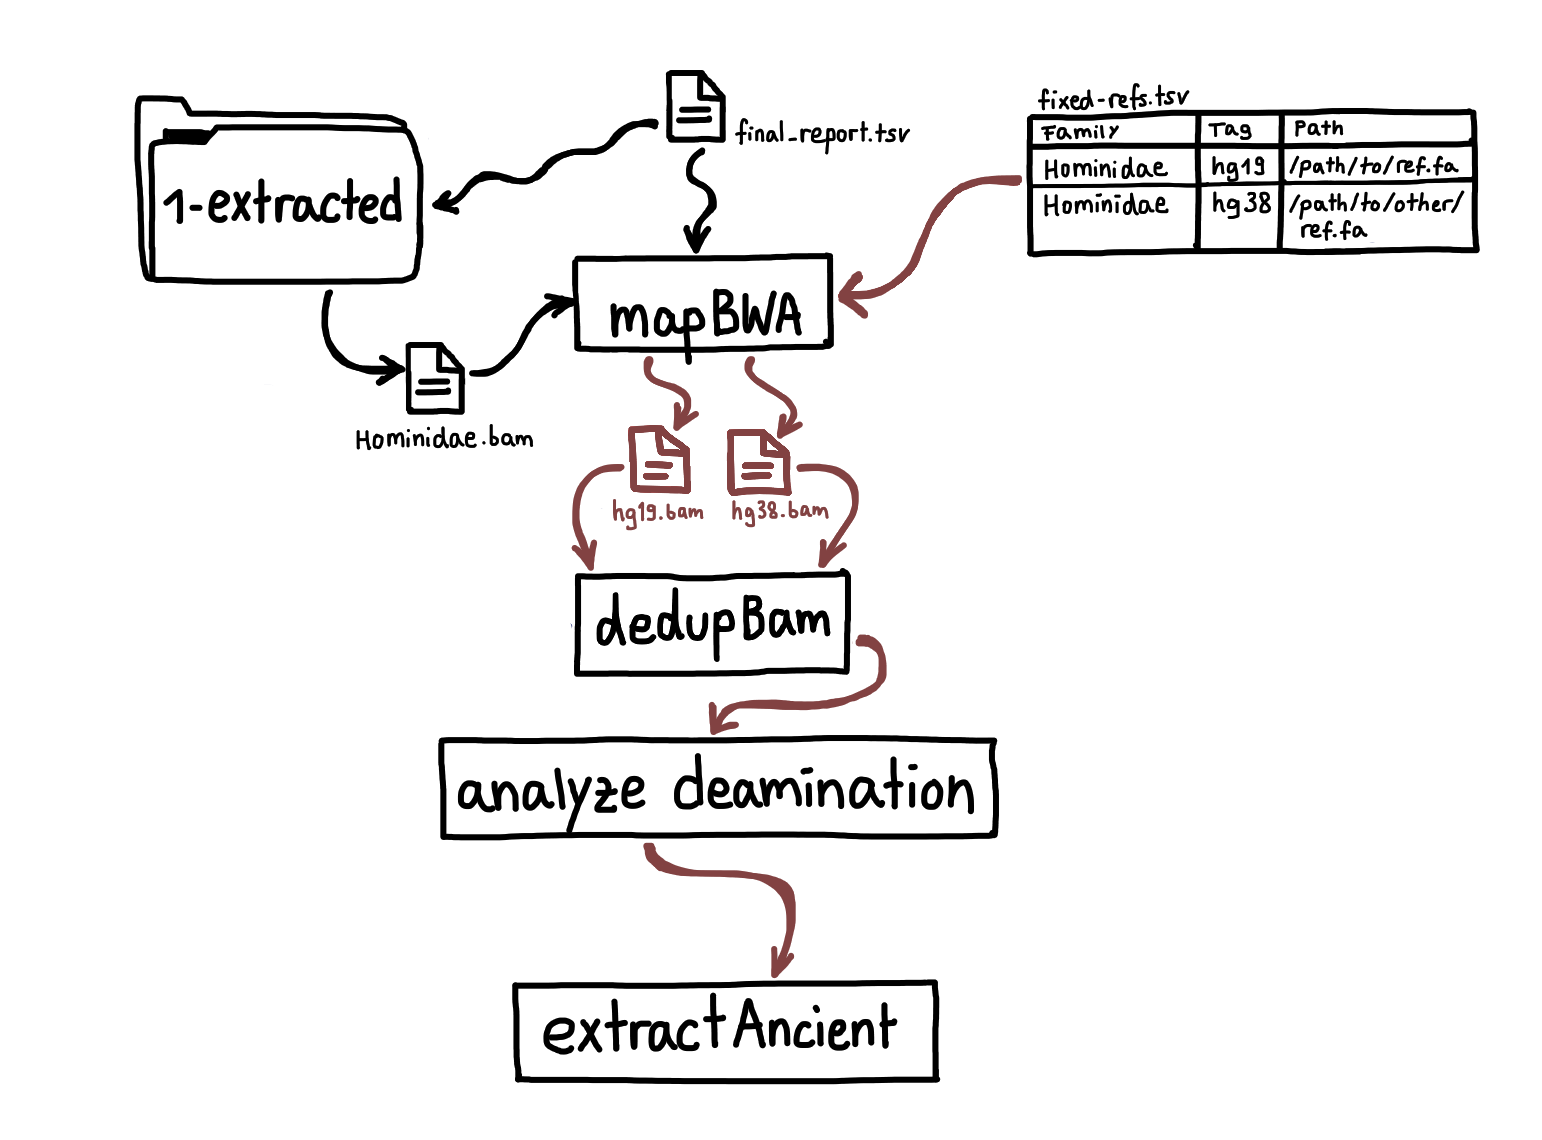 final_report.tsv
fixed-refs.tsv
Family Tag Path
Hominidae hg19 /path/to/ref.fa
Hominidae hg38 /path/to/other/
ref.fa
1-extracted
mapBWA
Hominidae.bam
hg19.bam hg38.bam
dedupBam
analyze deamination
extractAncient